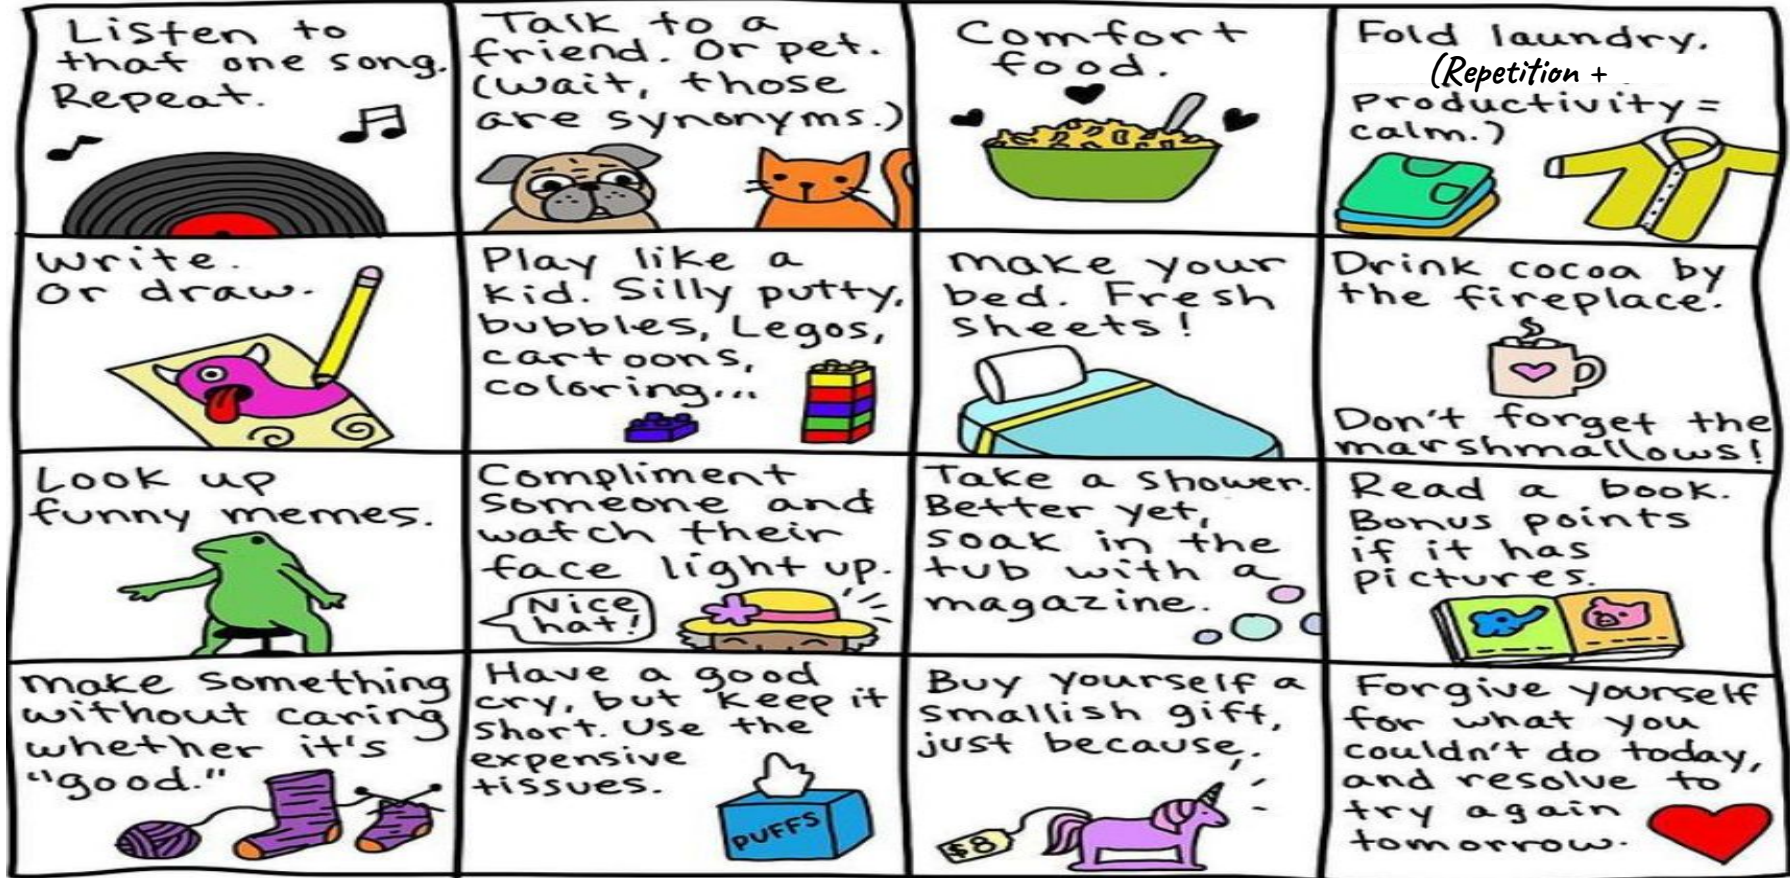 Listen to
that one song.
Repeat.
Talk to a
friend. Or pet.
(wait, those
are synonyms.)
Comfort
food.
Fold laundry.
(Repetition +
Productivity =
calm.)
Write.
Or draw.
Play like a
kid. Silly putty,
bubbles, Legos,
cartoons,
coloring...
make your
bed. Fresh
sheets!
Drink cocoa by
the fireplace.
Don't forget the
marshmallows!
Look up
funny memes.
Compliment
someone and
watch their
face light up.
Nice
hat!
Take a shower.
Better yet,
soak in the
tub with a
magazine.
Read a book.
Bonus points
if it has
pictures.
make something
without caring
whether it's
"good."
Have a good
cry, but keep it
short. Use the
expensive
tissues.
PUFFS
Buy yourself a
smallish gift,
just because.
$8
Forgive yourself
for what you
couldn't do today,
and resolve to
try again
tomorrow.